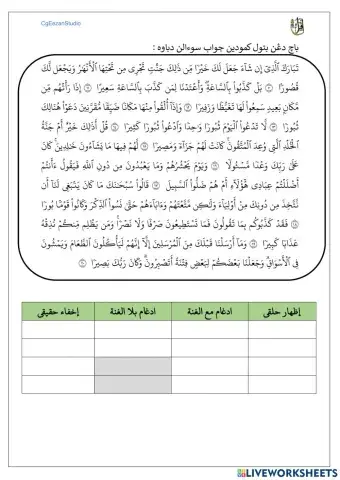 CgEszanStudio
باچ دڠن بتول كمودين جواب سوءالن دباوه :
تَبَارَكَ ٱلَّذِىٓ إِن شَآءَ جَعَلَ لَكَ خَيْرًا مِّن ذَٰلِكَ جَنَّـٰتٍ تَجْرِى مِن تَحْتِهَا ٱلْأَنْهَـٰرُ وَيَجْعَل لَّكَ
قُصُورًۢا ۝ بَلْ كَذَّبُوا۟ بِٱلسَّاعَةِ ۖ وَأَعْتَدْنَا لِمَن كَذَّبَ بِٱلسَّاعَةِ سَعِيرًا ۝ إِذَا رَأَتْهُم مِّن
مَّكَانٍۭ بَعِيدٍ سَمِعُوا۟ لَهَا تَغَيُّظًا وَزَفِيرًا ۝ وَإِذَآ أُلْقُوا۟ مِنْهَا مَكَانًا ضَيِّقًا مُّقَرَّنِينَ دَعَوْا۟ هُنَالِكَ
ثُبُورًا ۝ لَّا تَدْعُوا۟ ٱلْيَوْمَ ثُبُورًا وَٰحِدًا وَٱدْعُوا۟ ثُبُورًا كَثِيرًا ۝ قُلْ أَذَٰلِكَ خَيْرٌ أَمْ جَنَّةُ
ٱلْخُلْدِ ٱلَّتِى وُعِدَ ٱلْمُتَّقُونَ ۚ كَانَتْ لَهُمْ جَزَآءً وَمَصِيرًا ۝ لَّهُمْ فِيهَا مَا يَشَآءُونَ خَـٰلِدِينَ ۚ كَانَ
عَلَىٰ رَبِّكَ وَعْدًا مَّسْـُٔولًا ۝ وَيَوْمَ يَحْشُرُهُمْ وَمَا يَعْبُدُونَ مِن دُونِ ٱللَّهِ فَيَقُولُ ءَأَنتُمْ
أَضْلَلْتُمْ عِبَادِى هَـٰٓؤُلَآءِ أَمْ هُمْ ضَلُّوا۟ ٱلسَّبِيلَ ۝ قَالُوا۟ سُبْحَـٰنَكَ مَا كَانَ يَنۢبَغِى لَنَآ أَن
نَّتَّخِذَ مِن دُونِكَ مِنْ أَوْلِيَآءَ وَلَـٰكِن مَّتَّعْتَهُمْ وَءَابَآءَهُمْ حَتَّىٰ نَسُوا۟ ٱلذِّكْرَ وَكَانُوا۟ قَوْمًۢا بُورًا
۝ فَقَدْ كَذَّبُوكُم بِمَا تَقُولُونَ فَمَا تَسْتَطِيعُونَ صَرْفًا وَلَا نَصْرًا ۚ وَمَن يَظْلِم مِّنكُمْ نُذِقْهُ
عَذَابًا كَبِيرًا ۝ وَمَآ أَرْسَلْنَا قَبْلَكَ مِنَ ٱلْمُرْسَلِينَ إِلَّآ إِنَّهُمْ لَيَأْكُلُونَ ٱلطَّعَامَ وَيَمْشُونَ
فِى ٱلْأَسْوَاقِ ۗ وَجَعَلْنَا بَعْضَكُمْ لِبَعْضٍ فِتْنَةً أَتَصْبِرُونَ ۗ وَكَانَ رَبُّكَ بَصِيرًا ۝
إظهار حلقي ادغام مع الغنة ادغام بلا الغنة إخفاء حقيقي
LIVEWORKSHEETS